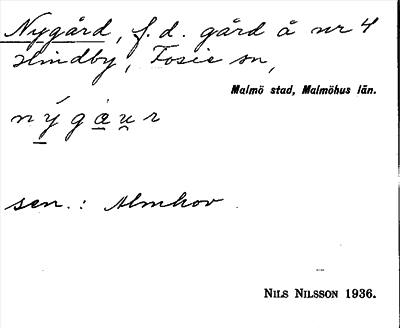 Nygård, f.d. gård å nr 4
Hindby, Fosie sn,
Malmö stad, Malmöhus län.
nýgau̯r
sen.: Almhov
NILS NILSSON 1936.